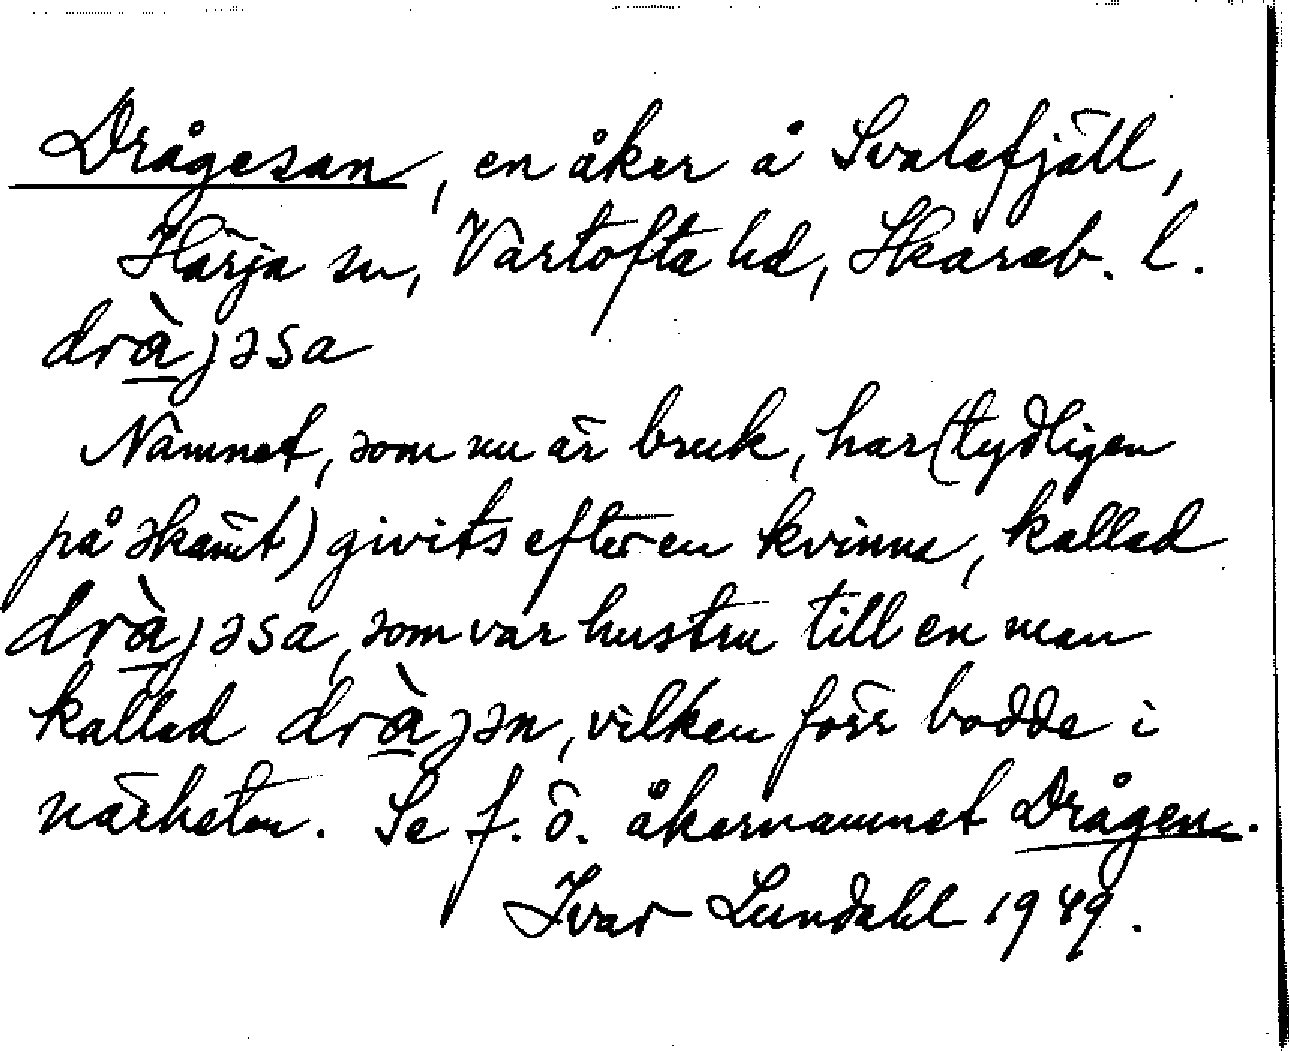 Drågesan, en åker å Svalefjäll,
Härja sn, Vartofta hd, Skarab. l.
drà̱jəsa
Namnet, som nu är bruk, har (tydligen
på skämt) givits efter en kvinna, kallad
drà̱jəsa, som var hustru till en man
kallad drà̱jən, vilken förr bodde i
närheten. Se f. ö. åkernamnet Drågen.
Ivar Lundahl 1949.